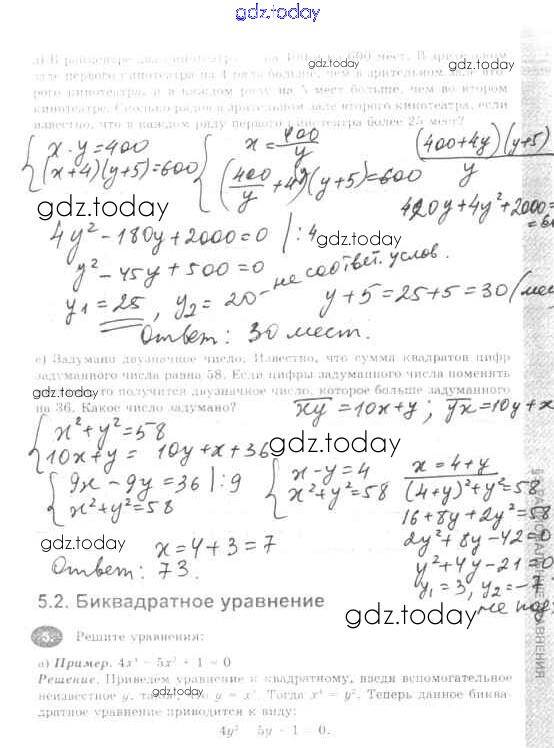 gdz.today
д) В райцентре два кинотеатра на 400 и на 600 мест. В зрительном
зале первого кинотеатра на 4 ряда больше, чем в зрительном зале вто-
рого кинотеатра, и в каждом ряду на 5 мест больше, чем во втором
кинотеатре. Сколько рядов в зрительном зале второго кинотеатра, если
известно, что в каждом ряду первого кинотеатра более 25 мест?
gdz.today gdz.today
x·y=400 x=400/y (400+4y)(y+5)/y
(x+4)(y+5)=600 (400/y+4)(y+5)=600
gdz.today gdz.today 420y+4y²+2000=
4y²-180y+2000=0 |:4
y²-45y+500=0
y₁=25, y₂=20- не соответ. услов.
y+5=25+5=30 (мес
Ответ: 30 мест.
gdz.today
е) Задумано двузначное число. Известно, что сумма квадратов цифр
задуманного числа равна 58. Если цифры задуманного числа поменять
gdz.today го получится двузначное число, которое больше задуманного
на 36. Какое число задумано? xy=10x+y; yx=10y+x
x²+y²=58
10x+y= 10y+x+36 gdz.today
9x-9y=36 |:9 x-y=4 x=4+y
x²+y²=58 x²+y²=58 (4+y)²+y²=58
16+8y+2y²=58
gdz.today gdz.today 2y²+8y-42=0
x=4+3=7 y²+4y-21=0
Ответ: 73. y₁=3, y₂=-7
не под
5.2. Биквадратное уравнение
gdz.today
5. Решите уравнения:
а) Пример. 4x⁴ - 5x² + 1 = 0
Решение. Приведем уравнение к квадратному, введя вспомогательное
неизвестное y, такое, что y = x². Тогда x⁴ = y². Теперь данное биква-
gdz.today
дратное уравнение приводится к виду:
4y² - 5y + 1 = 0.
gdz.today